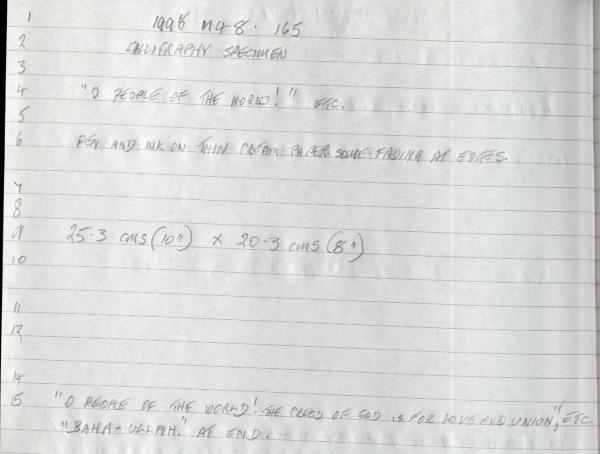 1 1998 M48. 165
2 CALLIGRAPHY SPECIMEN
3
4 "O PEOPLE OF THE WORLD!" ETC.
5
6 PEN AND INK ON THIN CREAM PAPER SOME FADING AT EDGES.
7
8
9 25.3 cms (10") x 20.3 cms (8")
10
11
12
14
15 "O PEOPLE OF THE WORLD! THE CREED OF GOD IS FOR LOVE AND UNION," ETC.
"BAHA-ULLAH." AT END.